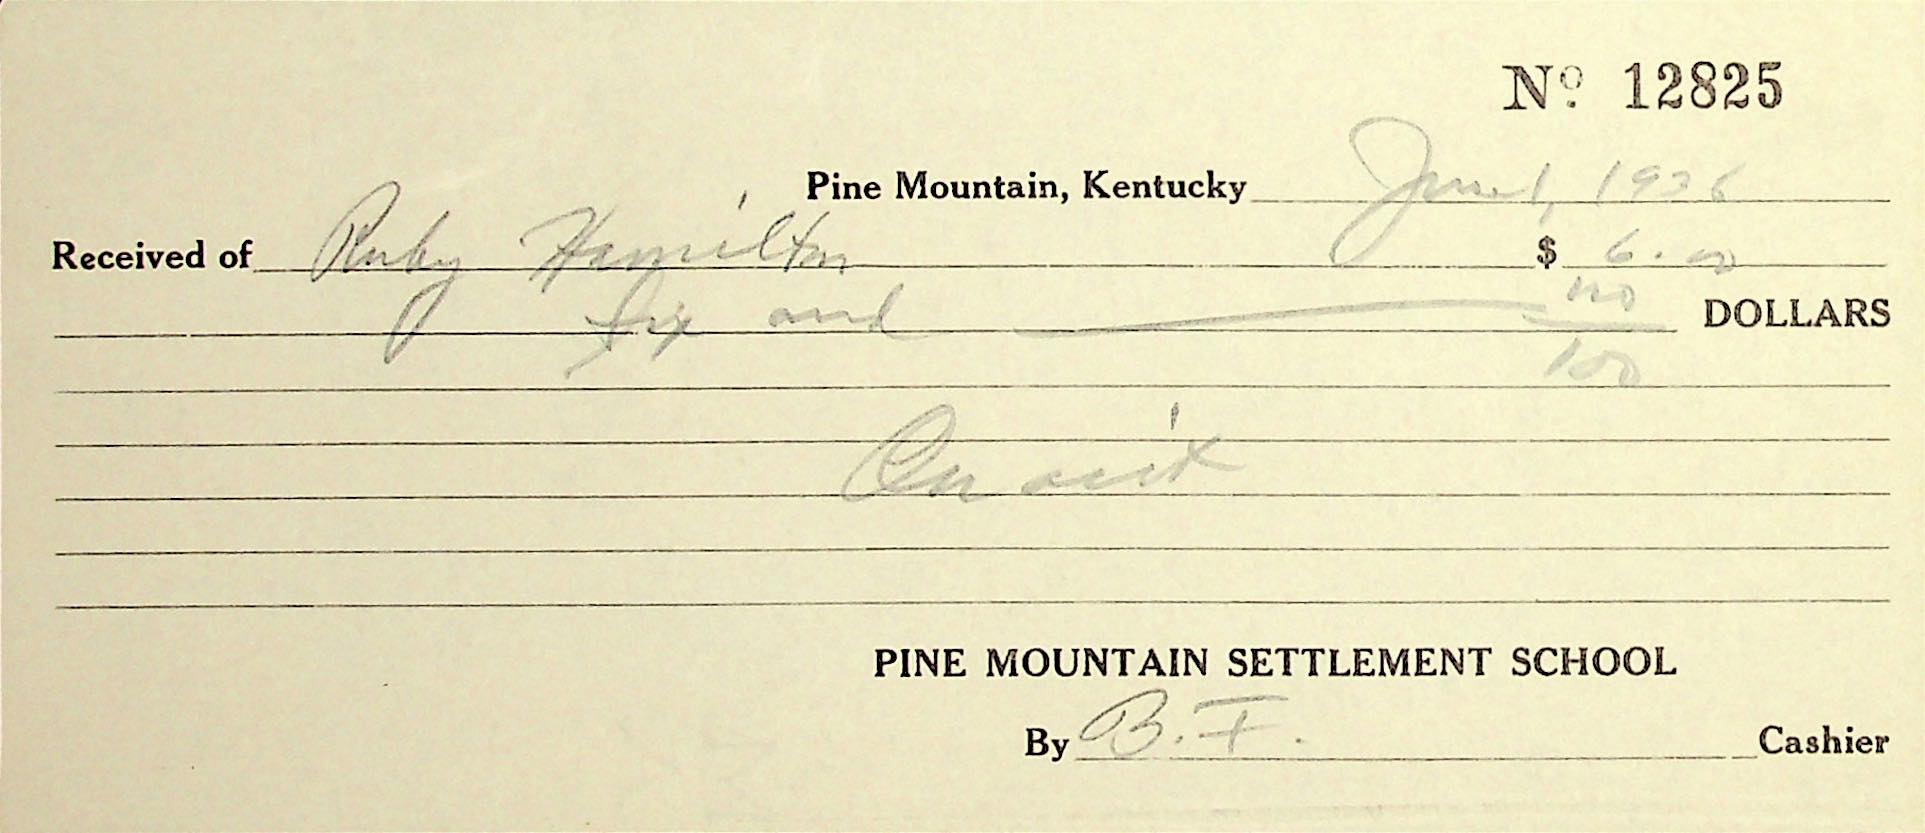 Nº 12825
Pine Mountain, Kentucky June 1, 1936
Received of Ruby Hamilton $ 6.00
Six and no/100 DOLLARS
On acct
PINE MOUNTAIN SETTLEMENT SCHOOL
By B. F. Cashier